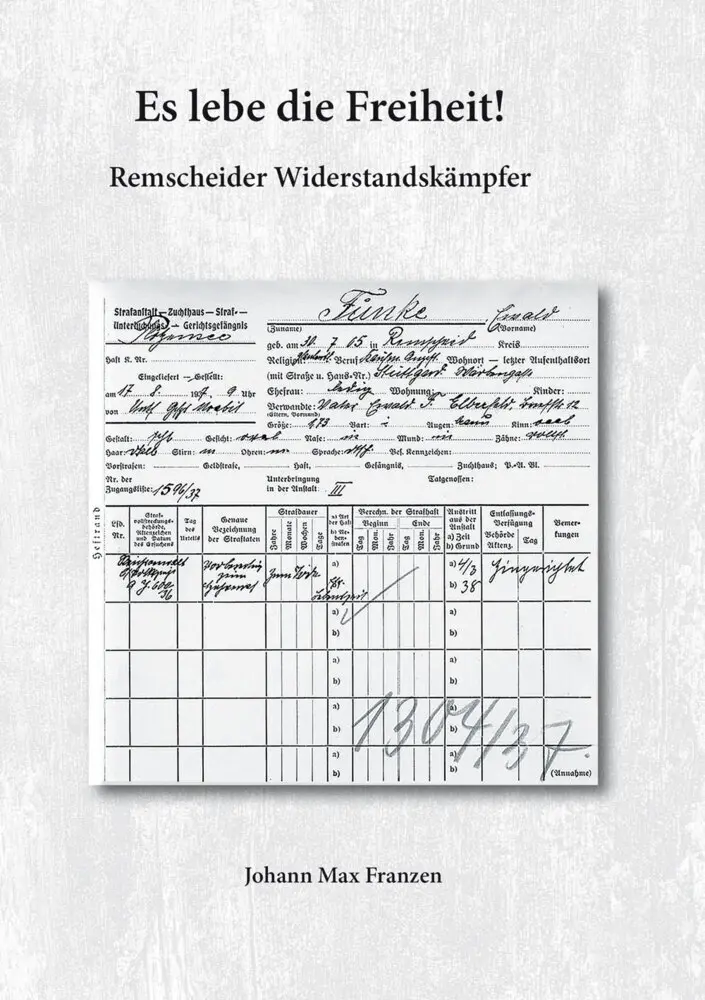 Es lebe die Freiheit!
Remscheider Widerstandskämpfer
Strafanstalt — Zuchthaus — Straf- —
Untersuchungs- — Gerichtsgefängnis
Plötzensee
Funke Ewald
(Zuname) (Vorname)
geb. am 30. 7 05 in Remscheid Kreis
Haft K. Nr.
Religion Beruf Wohnort — letzter Aufenthaltsort
Eingeliefert — Gestellt:
(mit Straße u. Haus-Nr.) Stuttgard,
am 17 8. 1937, 9 Uhr
Ehefrau: ledig Wohnung: Kinder:
von
Verwandte: Vater Ewald F. Elberfeld, 12
(Eltern, Vormund)
Größe: 1,73 Bart: Augen: braun Kinn: oval
Gestalt: Gesicht: oval Nase: Mund: Zähne:
Haar: Stirn: Ohren: Sprache: Bes. Kennzeichen:
Vorstrafen: Geldstrafe, Haft, Gefängnis, Zuchthaus; P.-A. Bl.
Nr. der
Zugangsliste: 1596/37
Unterbringung
in der Anstalt III
Tatgenossen:
Heftrand
Lfd. Nr.
Straf-
vollstreckungs-
behörde,
Aktenzeichen
und Datum
des Ersuchens
Tag
des
Urteils
Genaue
Bezeichnung
der Straftaten
Strafdauer
Jahre Monate Wochen Tage
a) Art
der Haft
b) An
Neben-
strafen
Verechn. der Strafhaft
Beginn Ende
Tag Mon. Jahr Tag Mon. Jahr
Austritt
aus der
Anstalt
a) Zeit
b) Grund
Entlassungs-
Verfügung
Behörde
Aktenz.
Tag
Bemer-
kungen
9 J. 600
36
Vorbereitung
zum
Zum Tode
a)
a) 4/3
b) 38
Hingerichtet
a) a)
b) b)
a) a)
b) b)
a) a)
b) b)
1304/37.
a) a)
b) b)
(Annahme)
Johann Max Franzen